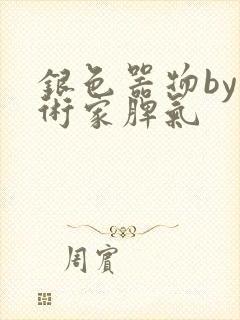 銀色器物by
術家脾氣
周賓